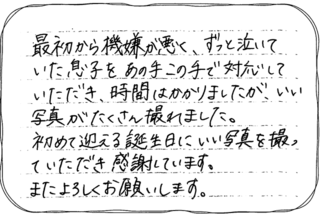 最初から機嫌が悪く、ずっと泣いて
いた息子をあの手この手で対応して
いただき、時間はかかりましたが、いい
写真がたくさん撮れました。
初めて迎える誕生日にいい写真を撮っ
ていただき感謝しています。
またよろしくお願いします。